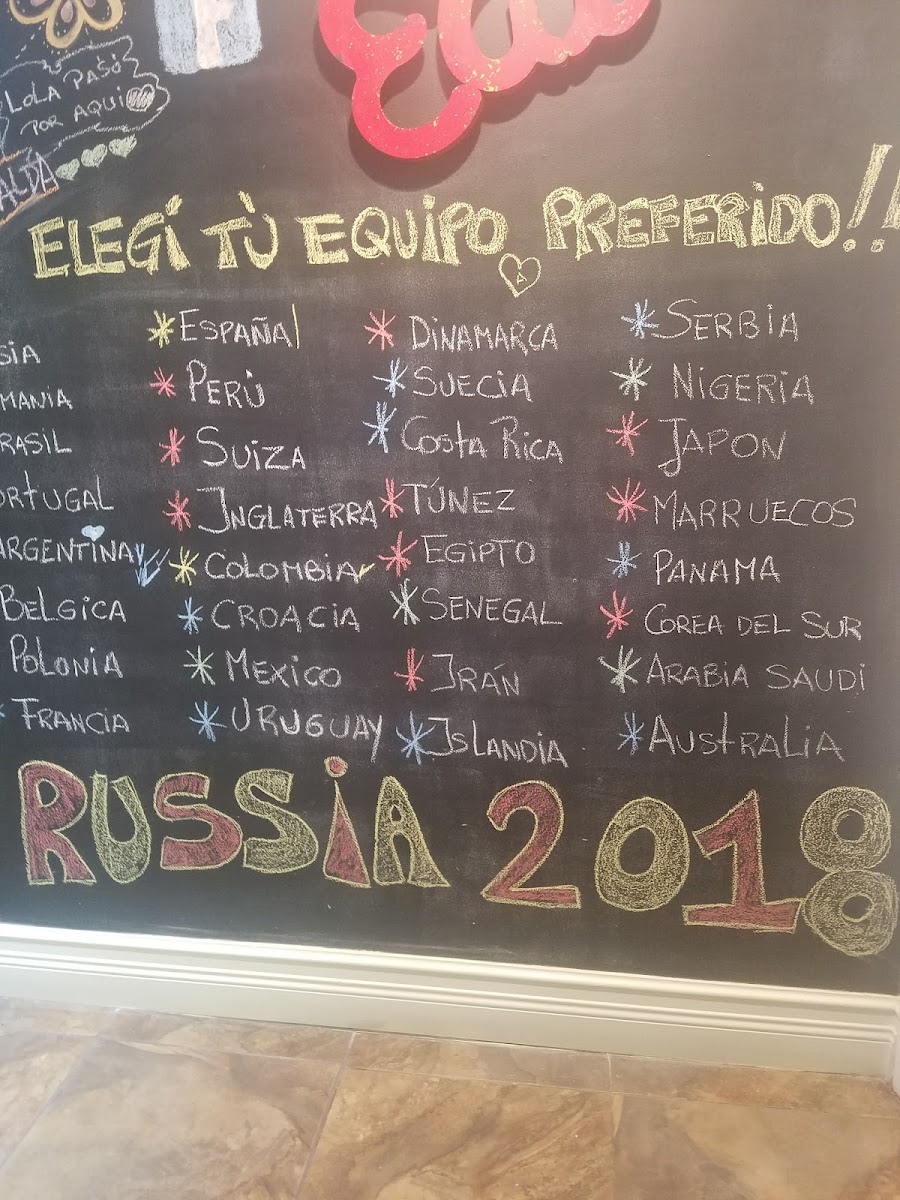 LOLA PASÓ
POR AQUI
ALDA
ELEGÍ TÙ EQUIPO PREFERIDO!!
SIA
MANIA
RASIL
ORTUGAL
ARGENTINA
BELGICA
POLONIA
FRANCIA
ESPAÑA
PERÙ
SUIZA
INGLATERRA
COLOMBIA
CROACIA
MEXICO
URUGUAY
DINAMARCA
SUECIA
COSTA RICA
TÚNEZ
EGIPTO
SENEGAL
IRÁN
ISLANDIA
SERBIA
NIGERIA
JAPON
MARRUECOS
PANAMA
COREA DEL SUR
ARABIA SAUDI
AUSTRALIA
RUSSIA 2018